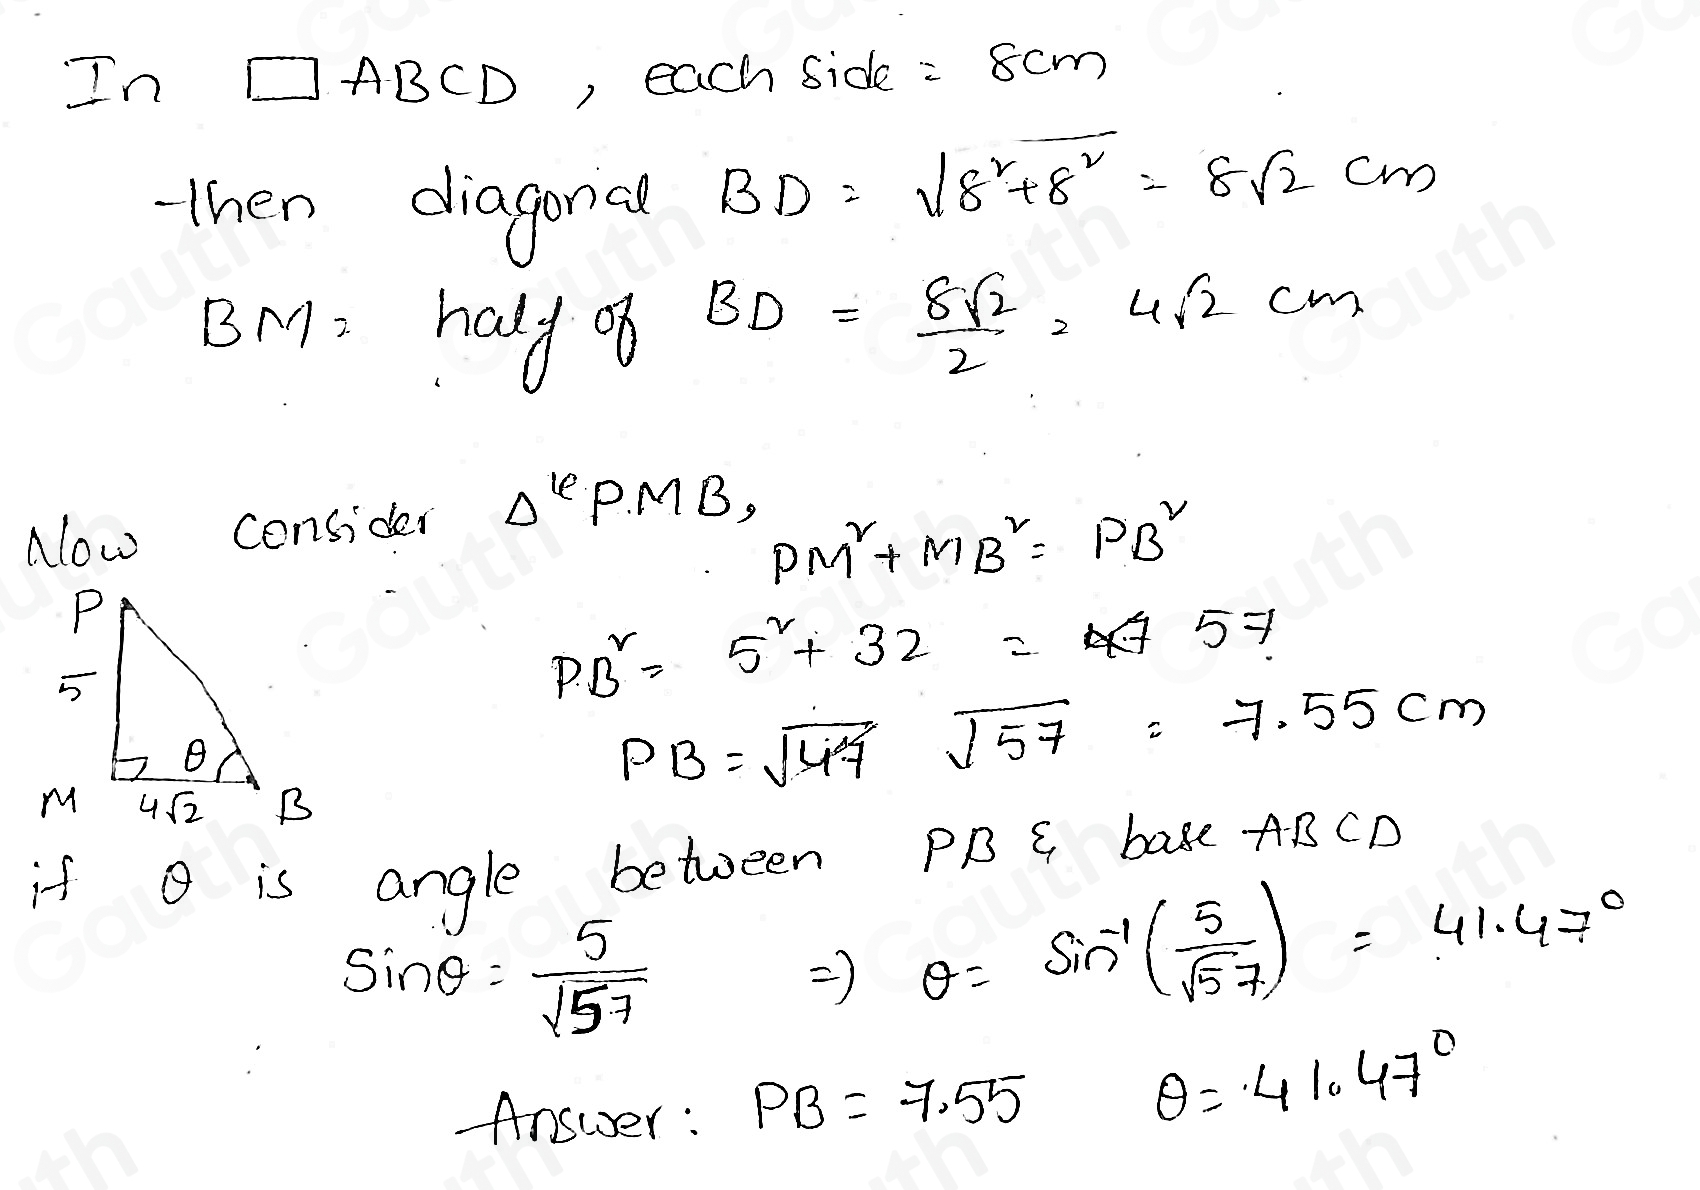 In □ ABCD, each side = 8cm
then diagonal BD = √8²+8² = 8√2 cm
BM = half of BD = 8√2/2 = 4√2 cm
Now consider Δle PMB,
PM² + MB² = PB²
PB² = 5² + 32 = 57
PB = √47 √57 = 7.55 cm
P
5
θ
M 4√2 B
if θ is angle between PB & base ABCD
Sinθ = 5/√57 => θ = Sin⁻¹(5/√57) = 41.47°
Answer: PB = 7.55 θ = 41.47°
Gauth